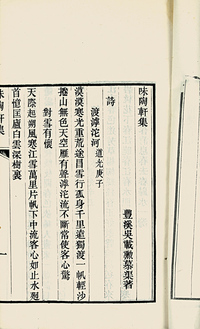 味陶軒集
豐溪吳載勲慕渠著
詩
渡滹沱河 道光庚子
漠漠寒光重荒途冒雪行孤身千里遠獨渡一帆輕沙
捲山無色天空雁有聲滹沱流不斷常使客心驚
對雪有懷
天際起朔風寒江雪萬里片帆下中流客心如止水廻
首憶匡廬白雲深樹裏
味陶軒集